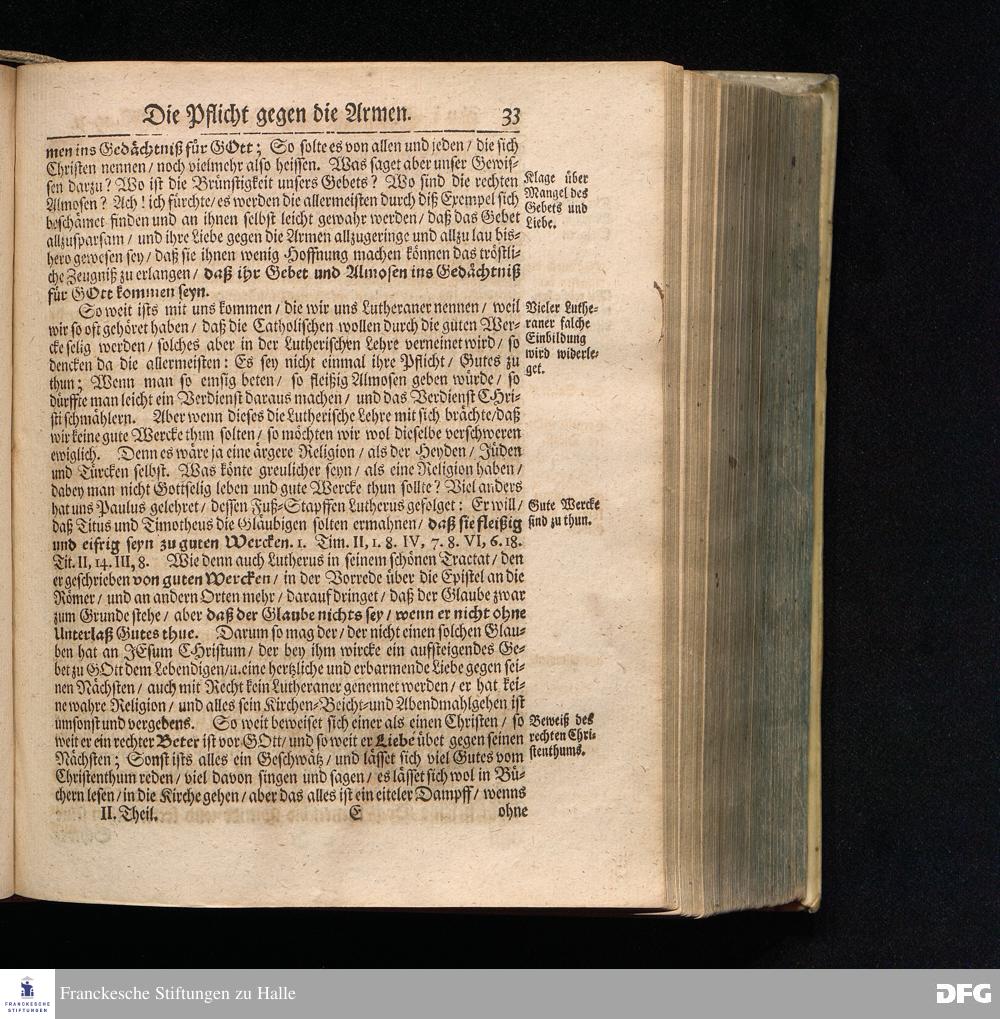 Die Pflicht gegen die Armen. 33
men ins Gedächtniß für GOtt; So solte es von allen und jeden / die sich
Christen nennen / noch vielmehr also heissen. Was saget aber unser Gewis-
sen darzu? Wo ist die Brünstigkeit unsers Gebets? Wo sind die rechten
Almosen? Ach! ich fürchte / es werden die allermeisten durch diß Exempel sich
beschämet finden und an ihnen selbst leicht gewahr werden / daß das Gebet
allzusparsam / und ihre Liebe gegen die Armen allzugeringe und allzu lau bis-
hero gewesen sey / daß sie ihnen wenig Hoffnung machen können das tröstli-
che Zeugniß zu erlangen / daß ihr Gebet und Almosen ins Gedächtniß
für GOtt kommen seyn.
Klage über
Mangel des
Gebets und
Liebe.
So weit ists mit uns kommen / die wir uns Lutheraner nennen / weil
wir so oft gehöret haben / daß die Catholischen wollen durch die guten Wer-
cke selig werden / solches aber in der Lutherischen Lehre verneinet wird / so
dencken da die allermeisten: Es sey nicht einmal ihre Pflicht / Gutes zu
thun; Wenn man so emsig beten / so fleißig Almosen geben würde / so
dürffte man leicht ein Verdienst daraus machen / und das Verdienst CHri-
sti schmählern. Aber wenn dieses die Lutherische Lehre mit sich brächte / daß
wir keine gute Wercke thun solten / so möchten wir wol dieselbe verschweren
ewiglich. Denn es wäre ja eine ärgere Religion / als der Heyden / Jüden
und Türcken selbst. Was könte greulicher seyn / als eine Religion haben /
dabey man nicht Gottselig leben und gute Wercke thun sollte? Viel anders
hat uns Paulus gelehret / dessen Fuß-Stapffen Lutherus gefolget: Er will /
daß Titus und Timotheus die Gläubigen solten ermahnen / daß sie fleißig
und eifrig seyn zu guten Wercken. 1. Tim. II, 1. 8. IV, 7. 8. VI, 6. 18.
Tit. II, 14. III, 8. Wie denn auch Lutherus in seinem schönen Tractat / den
er geschrieben von guten Wercken / in der Vorrede über die Epistel an die
Römer / und an andern Orten mehr / darauf dringet / daß der Glaube zwar
zum Grunde stehe / aber daß der Glaube nichts sey / wenn er nicht ohne
Unterlaß Gutes thue. Darum so mag der / der nicht einen solchen Glau-
ben hat an JEsum CHristum / der bey ihm wircke ein aufsteigendes Ge-
bet zu GOtt dem Lebendigen / u. eine hertzliche und erbarmende Liebe gegen sei-
nen Nächsten / auch mit Recht kein Lutheraner genennet werden / er hat kei-
ne wahre Religion / und alles sein Kirchen-Beicht-und Abendmahlgehen ist
umsonst und vergebens. So weit beweiset sich einer als einen Christen / so
weit er ein rechter Beter ist vor GOtt / und so weit er Liebe übet gegen seinen
Nächsten; Sonst ists alles ein Geschwätz / und lässet sich viel Gutes vom
Christenthum reden / viel davon singen und sagen / es lässet sich wol in Bü-
chern lesen / in die Kirche gehen / aber das alles ist ein eiteler Dampff / wenns
Vieler Luthe-
raner falche
Einbildung
wird widerle-
get.
Gute Wercke
sind zu thun.
Beweiß des
rechten Chri-
stenthums.
II. Theil. E ohne
FRANCKESCHE
STIFTUNGEN
Franckesche Stiftungen zu Halle
DFG